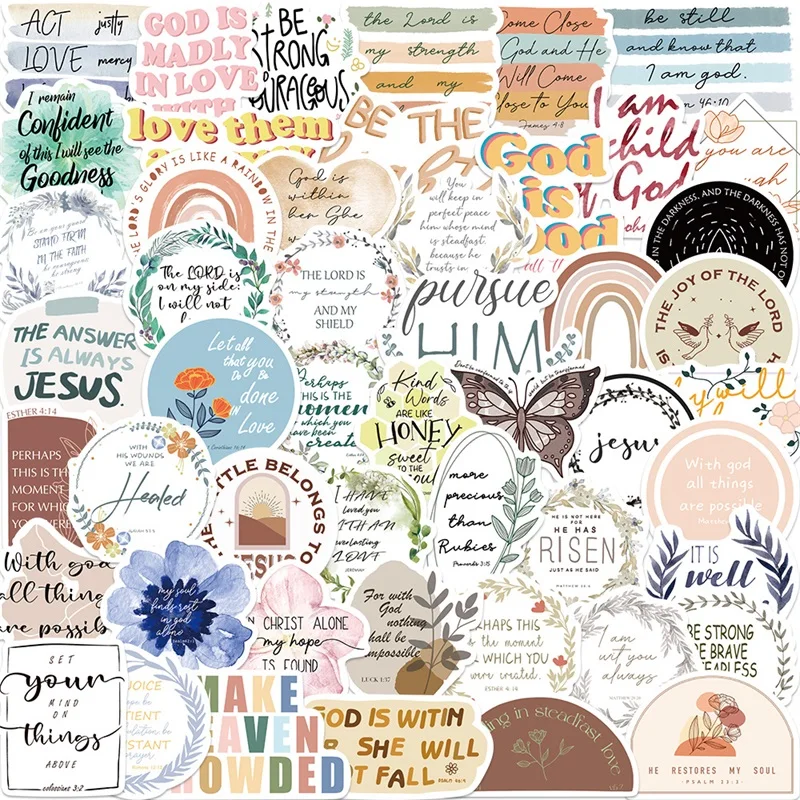 ACT justly
LOVE mercy
GOD IS
MADLY
IN LOVE
WITH
BE
STRONG
COURAGEOUS
the Lord is
my strength
and my
Come Close
God and He
Will Come
Close to You
James 4:8
be still
and know that
I am god.
46:10
I remain
Confident
of this I will see the
Goodness
love them
BE THE
God
is
good
I am
child
God
you are
THE LORD'S GLORY IS LIKE A RAINBOW IN THE
God is
within
her She
You
will keep in
perfect peace
him whose mind
is steadfast,
because he
trusts in
IN THE DARKNESS, AND THE DARKNESS HAS NOT
Be on your guard
STAND FIRM
IN THE FAITH
be courageous
be strong
The LORD is
on my side;
I will not
THE LORD IS
my strength
AND MY
SHIELD
pursue
HIM
THE JOY OF THE LORD
IS
THE ANSWER
IS ALWAYS
JESUS.
Let all
that you
Do Be
done
IN Love
Perhaps
THIS IS THE
moment
for which you
have been
created
Kind
Words
ARE LIKE
HONEY
sweet
TO THE
Don't be conformed
but be transformed
jesus
will
ESTHER 4:14
PERHAPS
THIS IS THE
MOMENT
FOR WHICH
YOU WERE
WITH
HIS WOUNDS
WE ARE
Healed
BATTLE BELONGS TO
JESUS
I HAVE
loved you
WITH AN
everlasting
LOVE
JEREMIAH
more
precious
than
Rubies
Proverbs 3:15
HE IS NOT HERE
FOR
HE HAS
RISEN
JUST AS HE SAID
MATTHEW 28:6
With god
all things
are possible
Matthew
With god
all things
are possib
my soul
finds rest
in god
alone
IN CHRIST ALONE
my hope
IS FOUND
For with
God
nothing
shall be
impossible
LUCK 1:37
PERHAPS THIS
is the moment
FOR WHICH YOU
were created.
ESTHER 4:14
I am
with you
always
IT IS
well
BE STRONG
BE BRAVE
FEARLESS
SET
your
MIND
ON
things
ABOVE
colossians 3:2
REJOICE
hope be
PATIENT
be
CONSTANT
prayer
MAKE
HEAVEN
CROWDED
GOD IS WITIN
R SHE WILL
NOT FALL
PSALM 46:5
in steadfast love
HE RESTORES MY SOUL
·PSALM 23:3·